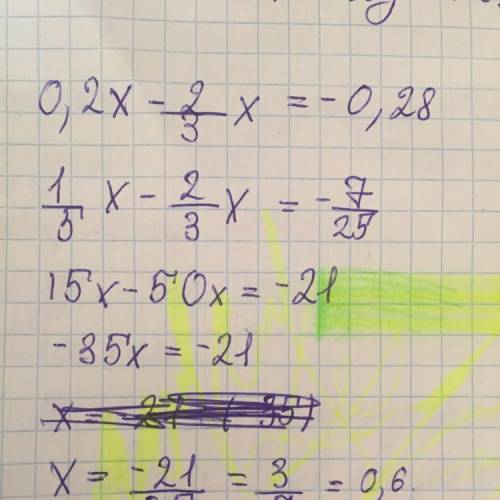 0,2x - 2/3 x = -0,28
1/5 x - 2/3 x = -7/25
15x - 50x = -21
-35x = -21
x = -21/35 = 3/5 = 0,6